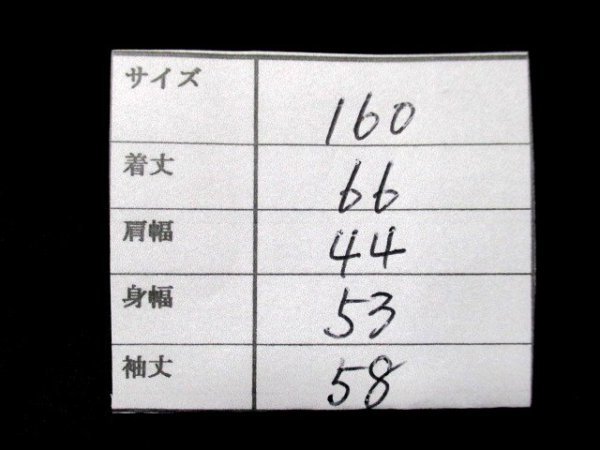 サイズ 160
着丈 66
肩幅 44
身幅 53
袖丈 58